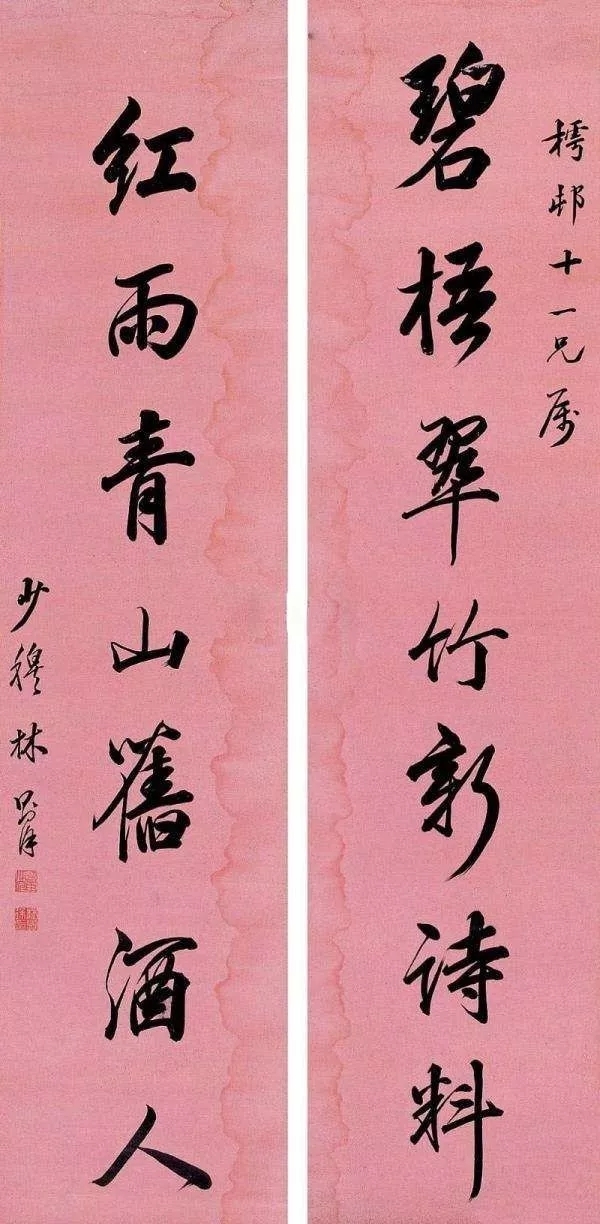 樗邨十一兄属
碧梧翠竹新诗料
红雨青山舊酒人
少穆林则徐